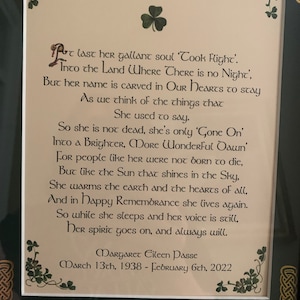 At last her gallant soul 'Took Flight',
Into the Land Where There is no Night',
But her name is carved in Our Hearts to stay
As we think of the things that
She used to say,
So she is not dead, she's only 'Gone On'
Into a Brighter, More Wonderful Dawn'
For people like her were not born to die,
But like the Sun that shines in the Sky,
She warms the earth and the hearts of all,
And in Happy Remembrance she lives again.
So while she sleeps and her voice is still,
Her spirit goes on, and always will.
Margaret Eileen Passe
March 13th, 1938 - February 6th, 2022